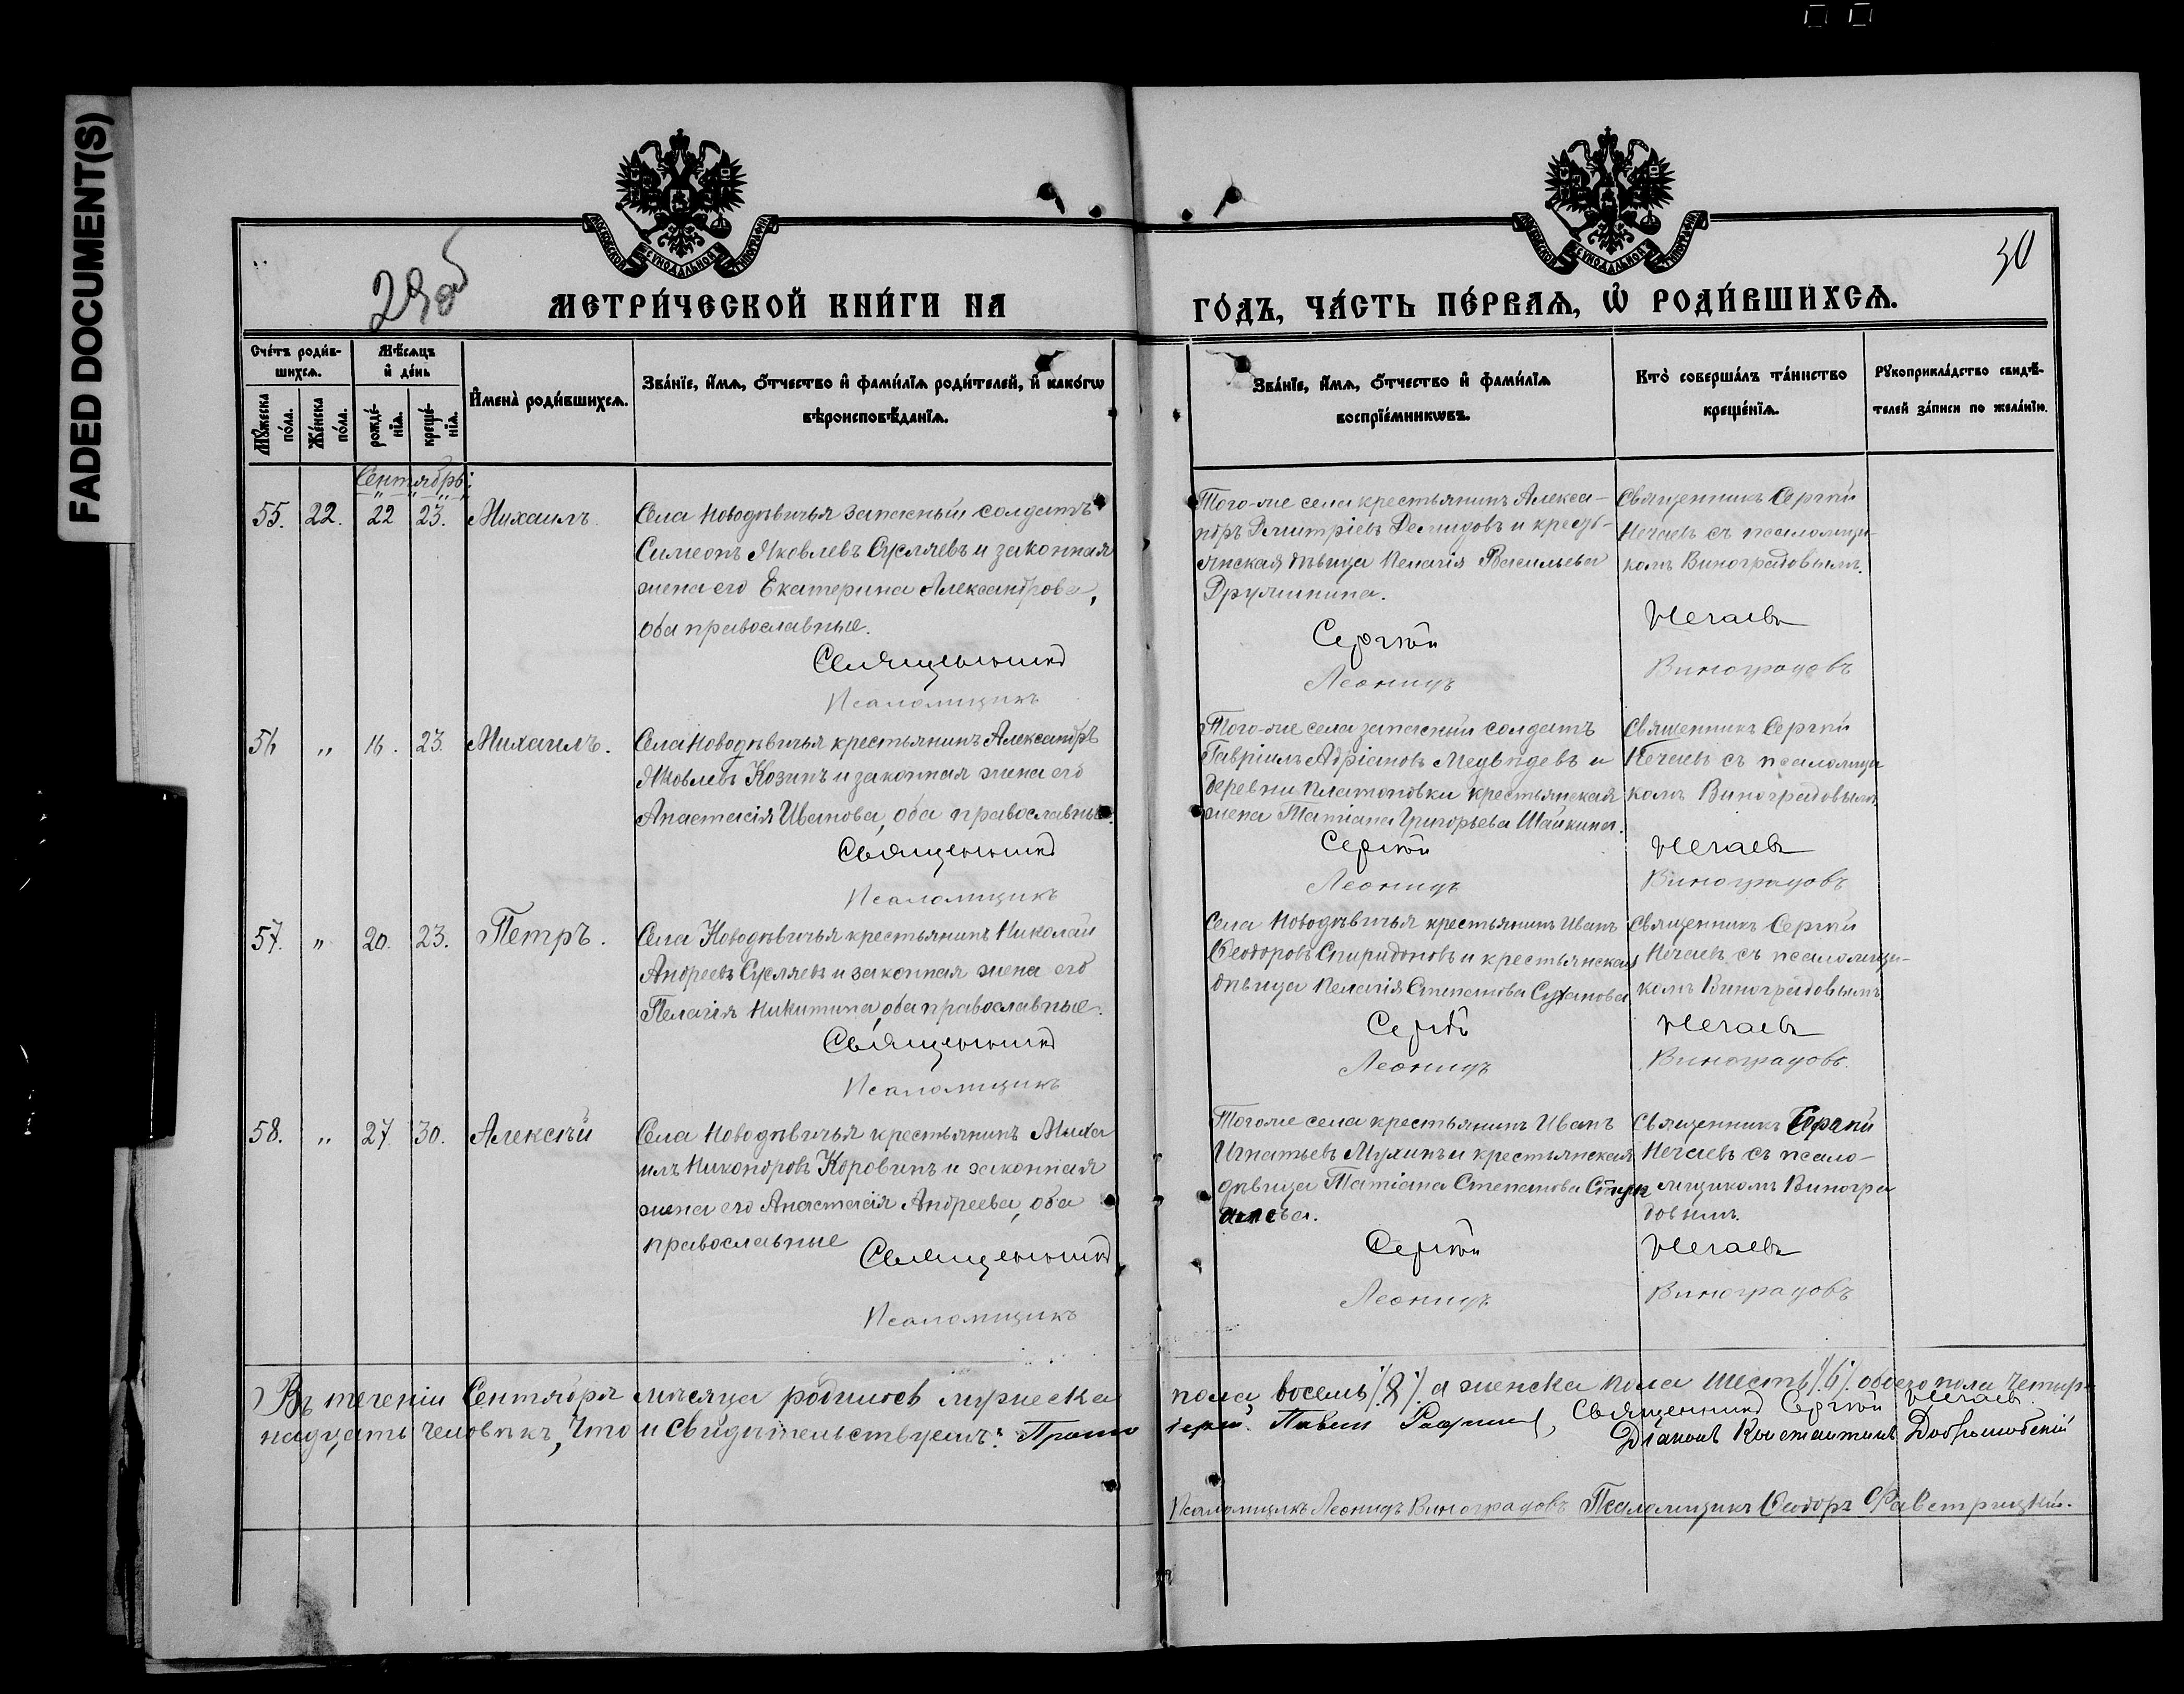 FADED DOCUMENT(S)
29об
30
МОСКОВСКОЙ СѴНОДАЛЬНОЙ ТИПОГРАФІИ
МОСКОВСКОЙ СѴНОДАЛЬНОЙ ТИПОГРАФІИ
МЕТРИ́ЧЕСКОЙ КНИ́ГИ НА
ГО́ДЪ, ЧА́СТЬ ПЕ́РВАѦ, Ѡ҆ РОДИ́ВШИХСѦ.
Сче́тъ роди́в-
шихсѧ.
Мꙋ́жеска по́ла.
Же́нска по́ла.
Мѣ́сѧцъ
и҆ де́нь
рожде́-
нїѧ.
креще́-
нїѧ.
И҆мена̀ роди́вшихсѧ.
Зва́нїе, и҆́мѧ, ѻ҆́тчество и҆ фами́лїѧ роди́телей, и҆ како́гѡ
вѣроисповѣ́данїѧ.
Зва́нїе, и҆́мѧ, ѻ҆́тчество и҆ фами́лїѧ
воспрїе́мникѡвъ.
Кто̀ соверша́лъ та́инство
креще́нїѧ.
Рꙋкоприкла́дство свидѣ́-
телей за́писи по жела́нїю.
Сентябрь:
55. 22. 22 23. Михаилъ.
Села Новодѣвичья запасный солдатъ
Симеонъ Яковлевъ Сусляевъ и законная
жена его Екатерина Александрова,
оба православные.
Священникъ
Псаломщикъ
Того-же села крестьянинъ Алекса-
ндръ Димитріевъ Демидовъ и кресть-
янская дѣвица Пелагія Васильева
Дружинина.
Сергій
Леонидъ
Священникъ Сергій
Нечаевъ съ псаломщи-
комъ Виноградовымъ.
Нечаевъ
Виноградовъ
56 „ 16. 23. Михаилъ.
Села Новодѣвичья крестьянинъ Александръ
Яковлевъ Козинъ и законная жена его
Анастасія Иванова, оба православные.
Священникъ
Псаломщикъ
Того-же села запасный солдатъ
Гавріилъ Адріановъ Медвѣдевъ и
деревни Платоновки крестьянская
жена Татіана Григорьева Шайкина.
Сергій
Леонидъ
Священникъ Сергій
Нечаевъ съ псаломщи
комъ Виноградовымъ
Нечаевъ
Виноградовъ
57. „ 20. 23. Петръ.
Села Новодѣвичья крестьянинъ Николай
Андреевъ Сусляевъ и законная жена его
Пелагія Никитина, оба православные.
Священникъ
Псаломщикъ
Села Новодѣвичья крестьянинъ Иванъ
Ѳеодоровъ Спиридоновъ и крестьянская
дѣвица Пелагія Степанова Суханова
Сергій
Леонидъ
Священникъ Сергій
Нечаевъ съ псаломщи-
комъ Виноградовымъ
Нечаевъ
Виноградовъ.
58. „ 27. 30. Алексѣй
Села Новодѣвичья крестьянинъ Миха
илъ Никоноровъ Коровинъ и законная
жена его Анастасія Андреева, оба
православные
Священникъ
Псаломщикъ
Тогоже села крестьянинъ Иванъ
Игнатьевъ Мухинъ и крестьянская
дѣвица Татіана Степанова
Сергій
Леонидъ
Священникъ Сергій
Нечаевъ съ псало-
мщикомъ Виногра
довымъ.
Нечаевъ
Виноградовъ
Въ теченіи Сентября мѣсяца родилось мужеска
пола, восемь /8/ а женска пола шесть /6/. обоего пола четыр-
надцать человѣкъ, что и свидѣтельствуемъ: Прото
іерей Павелъ
Священникъ Сергій Нечаевъ.
Діаконъ Константинъ
Псаломщикъ Леонидъ Виноградовъ Псаломщикъ Ѳеодоръ